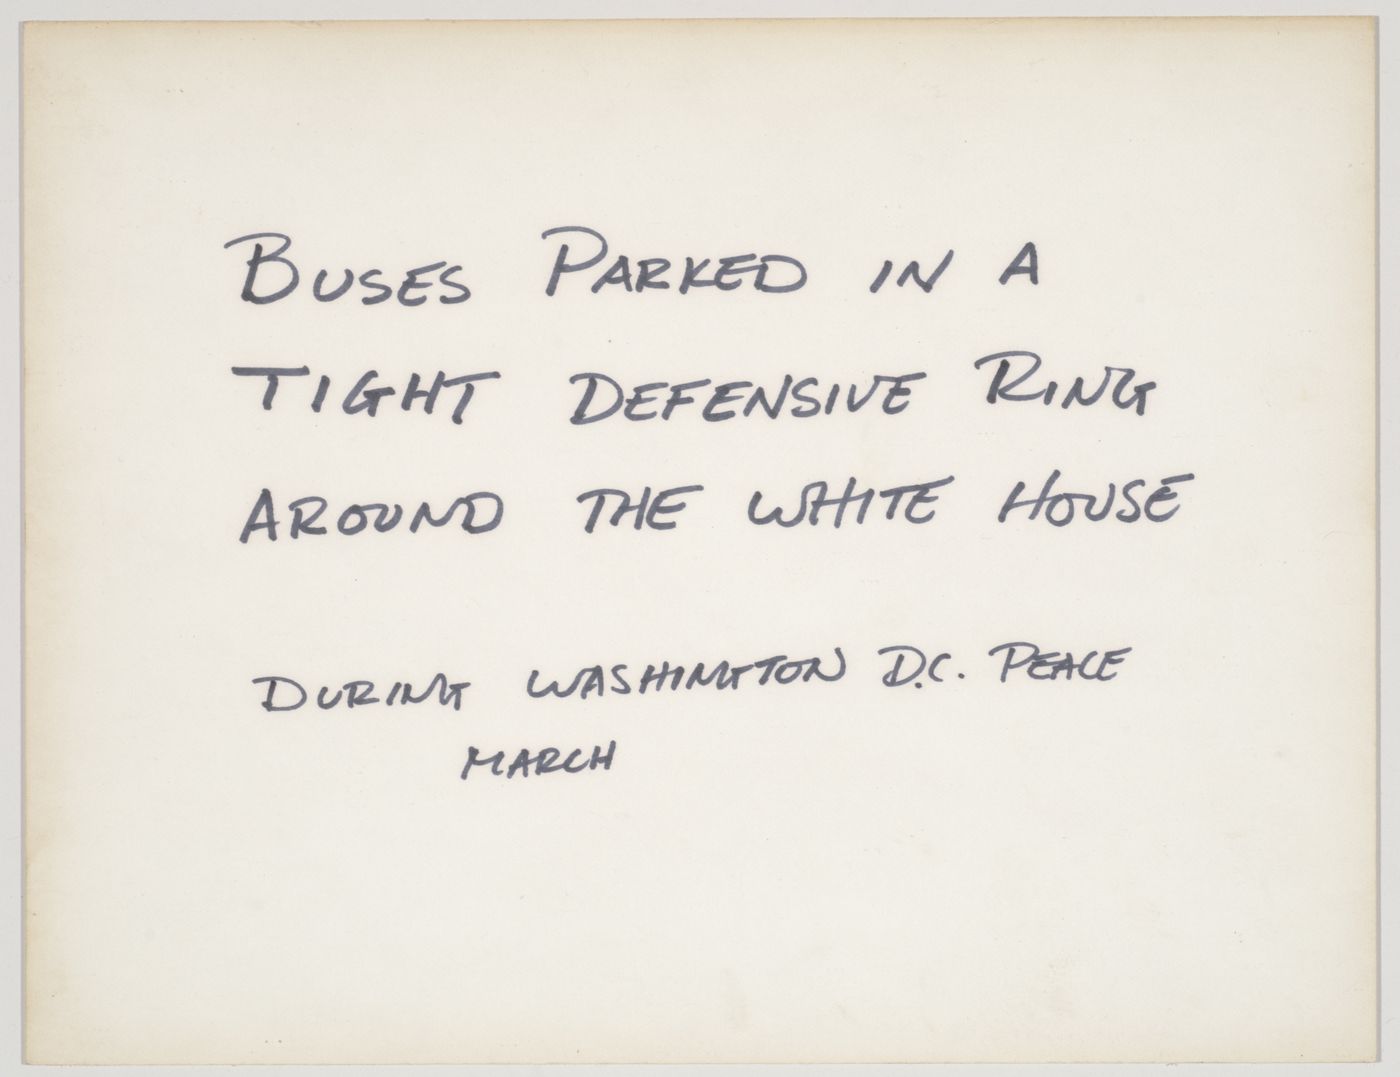 BUSES PARKED IN A
TIGHT DEFENSIVE RING
AROUND THE WHITE HOUSE
DURING WASHINGTON D.C. PEACE
MARCH